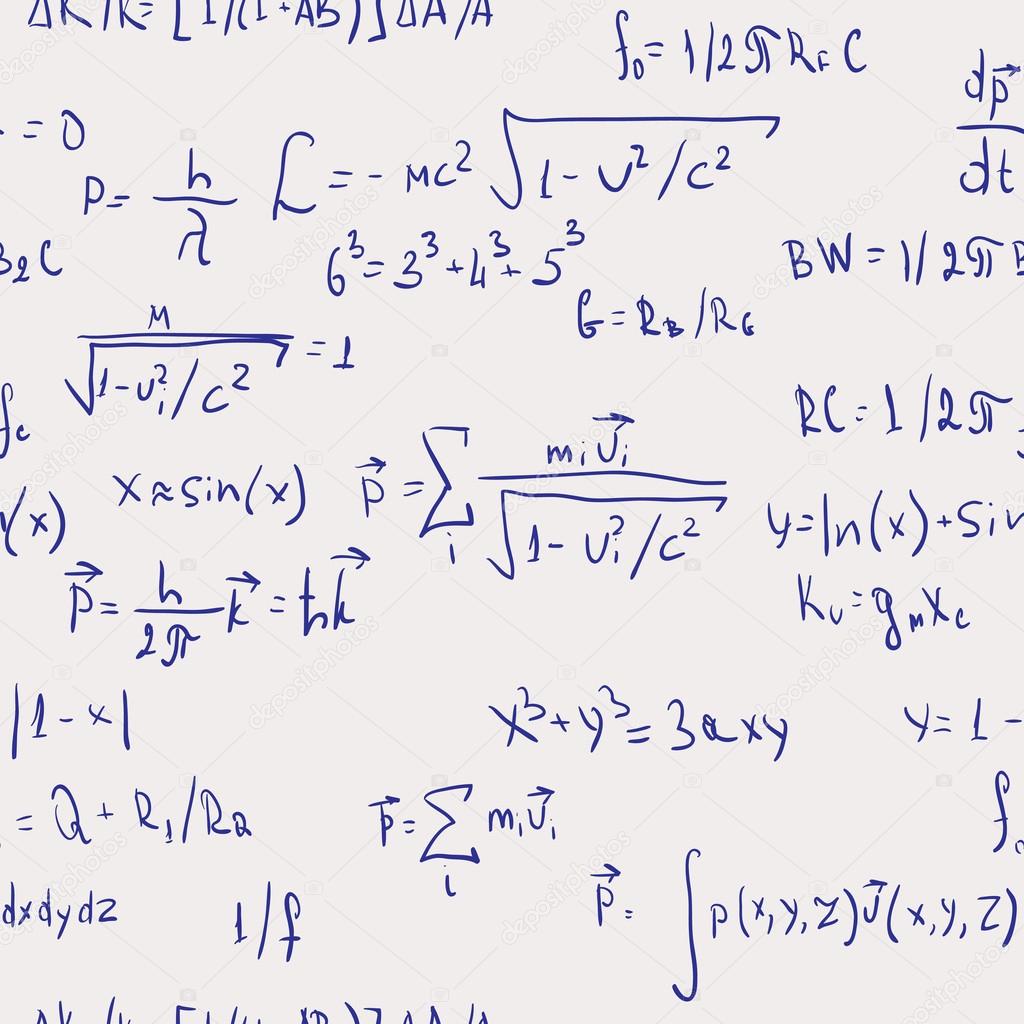 ΔK/K= [1/(1+AB)]ΔA/A
f₀= 1/2πR_F C
dp⃗/dt
= 0
P= h/λ
ℒ = - мc² √(1-υ²/c²)
B₂C
6³=3³+4³+5³
BW = 1/2π
G=R_B/R_G
м/√(1-υᵢ²/c²) = 1
RC= 1/2π
f_c
(x)
x≈sin(x)
p⃗ = ∑ᵢ mᵢυ⃗ᵢ/√(1-υᵢ²/c²)
y=ln(x)+Sin
p⃗= h/2π k⃗ = ħk⃗
K_υ=gₘX_c
|1-x|
x³+y³=3axy
y= 1 -
= Q+R₁/R₂
p⃗= ∑ᵢ mᵢυ⃗ᵢ
dxdydz
1/f
p⃗= ∫p(x,y,z)υ⃗(x,y,z)
depositphotos